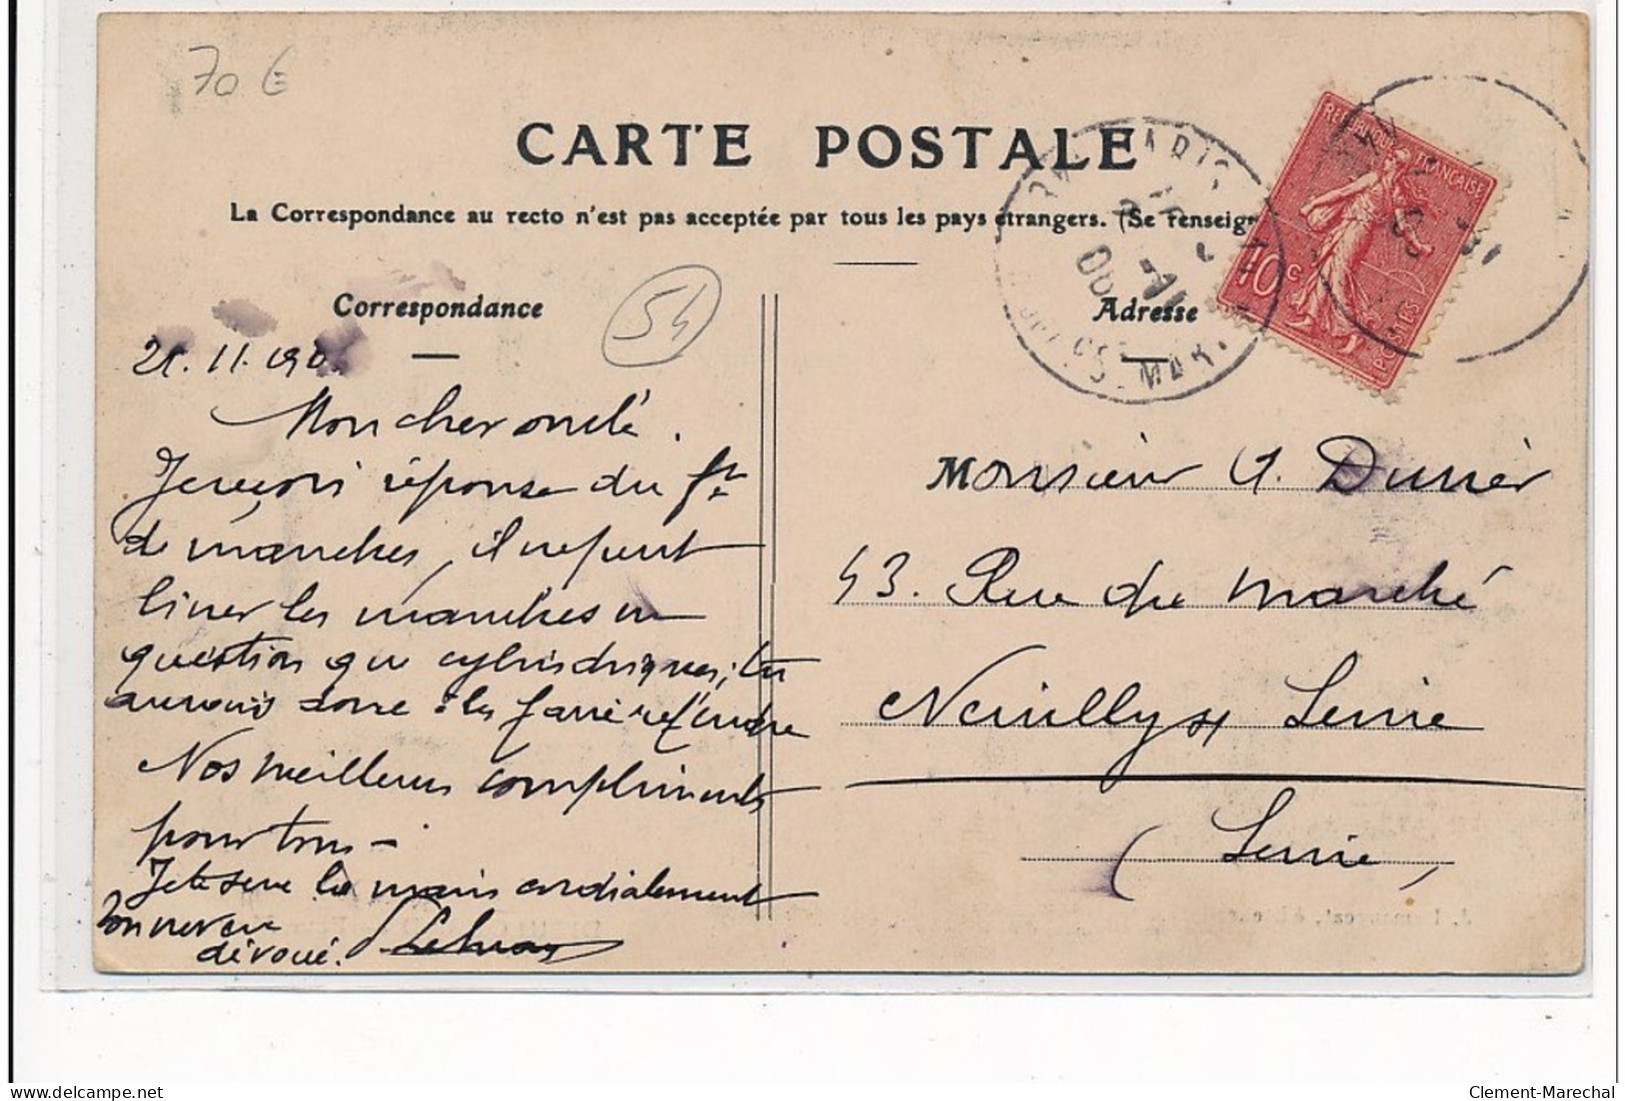 70 €
CARTE POSTALE
La Correspondance au recto n'est pas acceptée par tous les pays étrangers. (Se renseign
REPUBLIQUE FRANÇAISE
10 c
POSTES
PARIS
MAR
Correspondance
54
Adresse
21.11.190
Mon cher oncle.
Je reçois réponse du ft
de manches, il ne peut
livrer les manches en
question que cylindriques; tu
aurais donc à les faire refendre
Nos meilleurs compliments
pour tous -
Je te serre la main cordialement
Ton neveu
dévoué.
Monsieur A. Durrier
43. Rue du Marché
Neuilly s/ Seine
(Seine)
Clement-Marechal